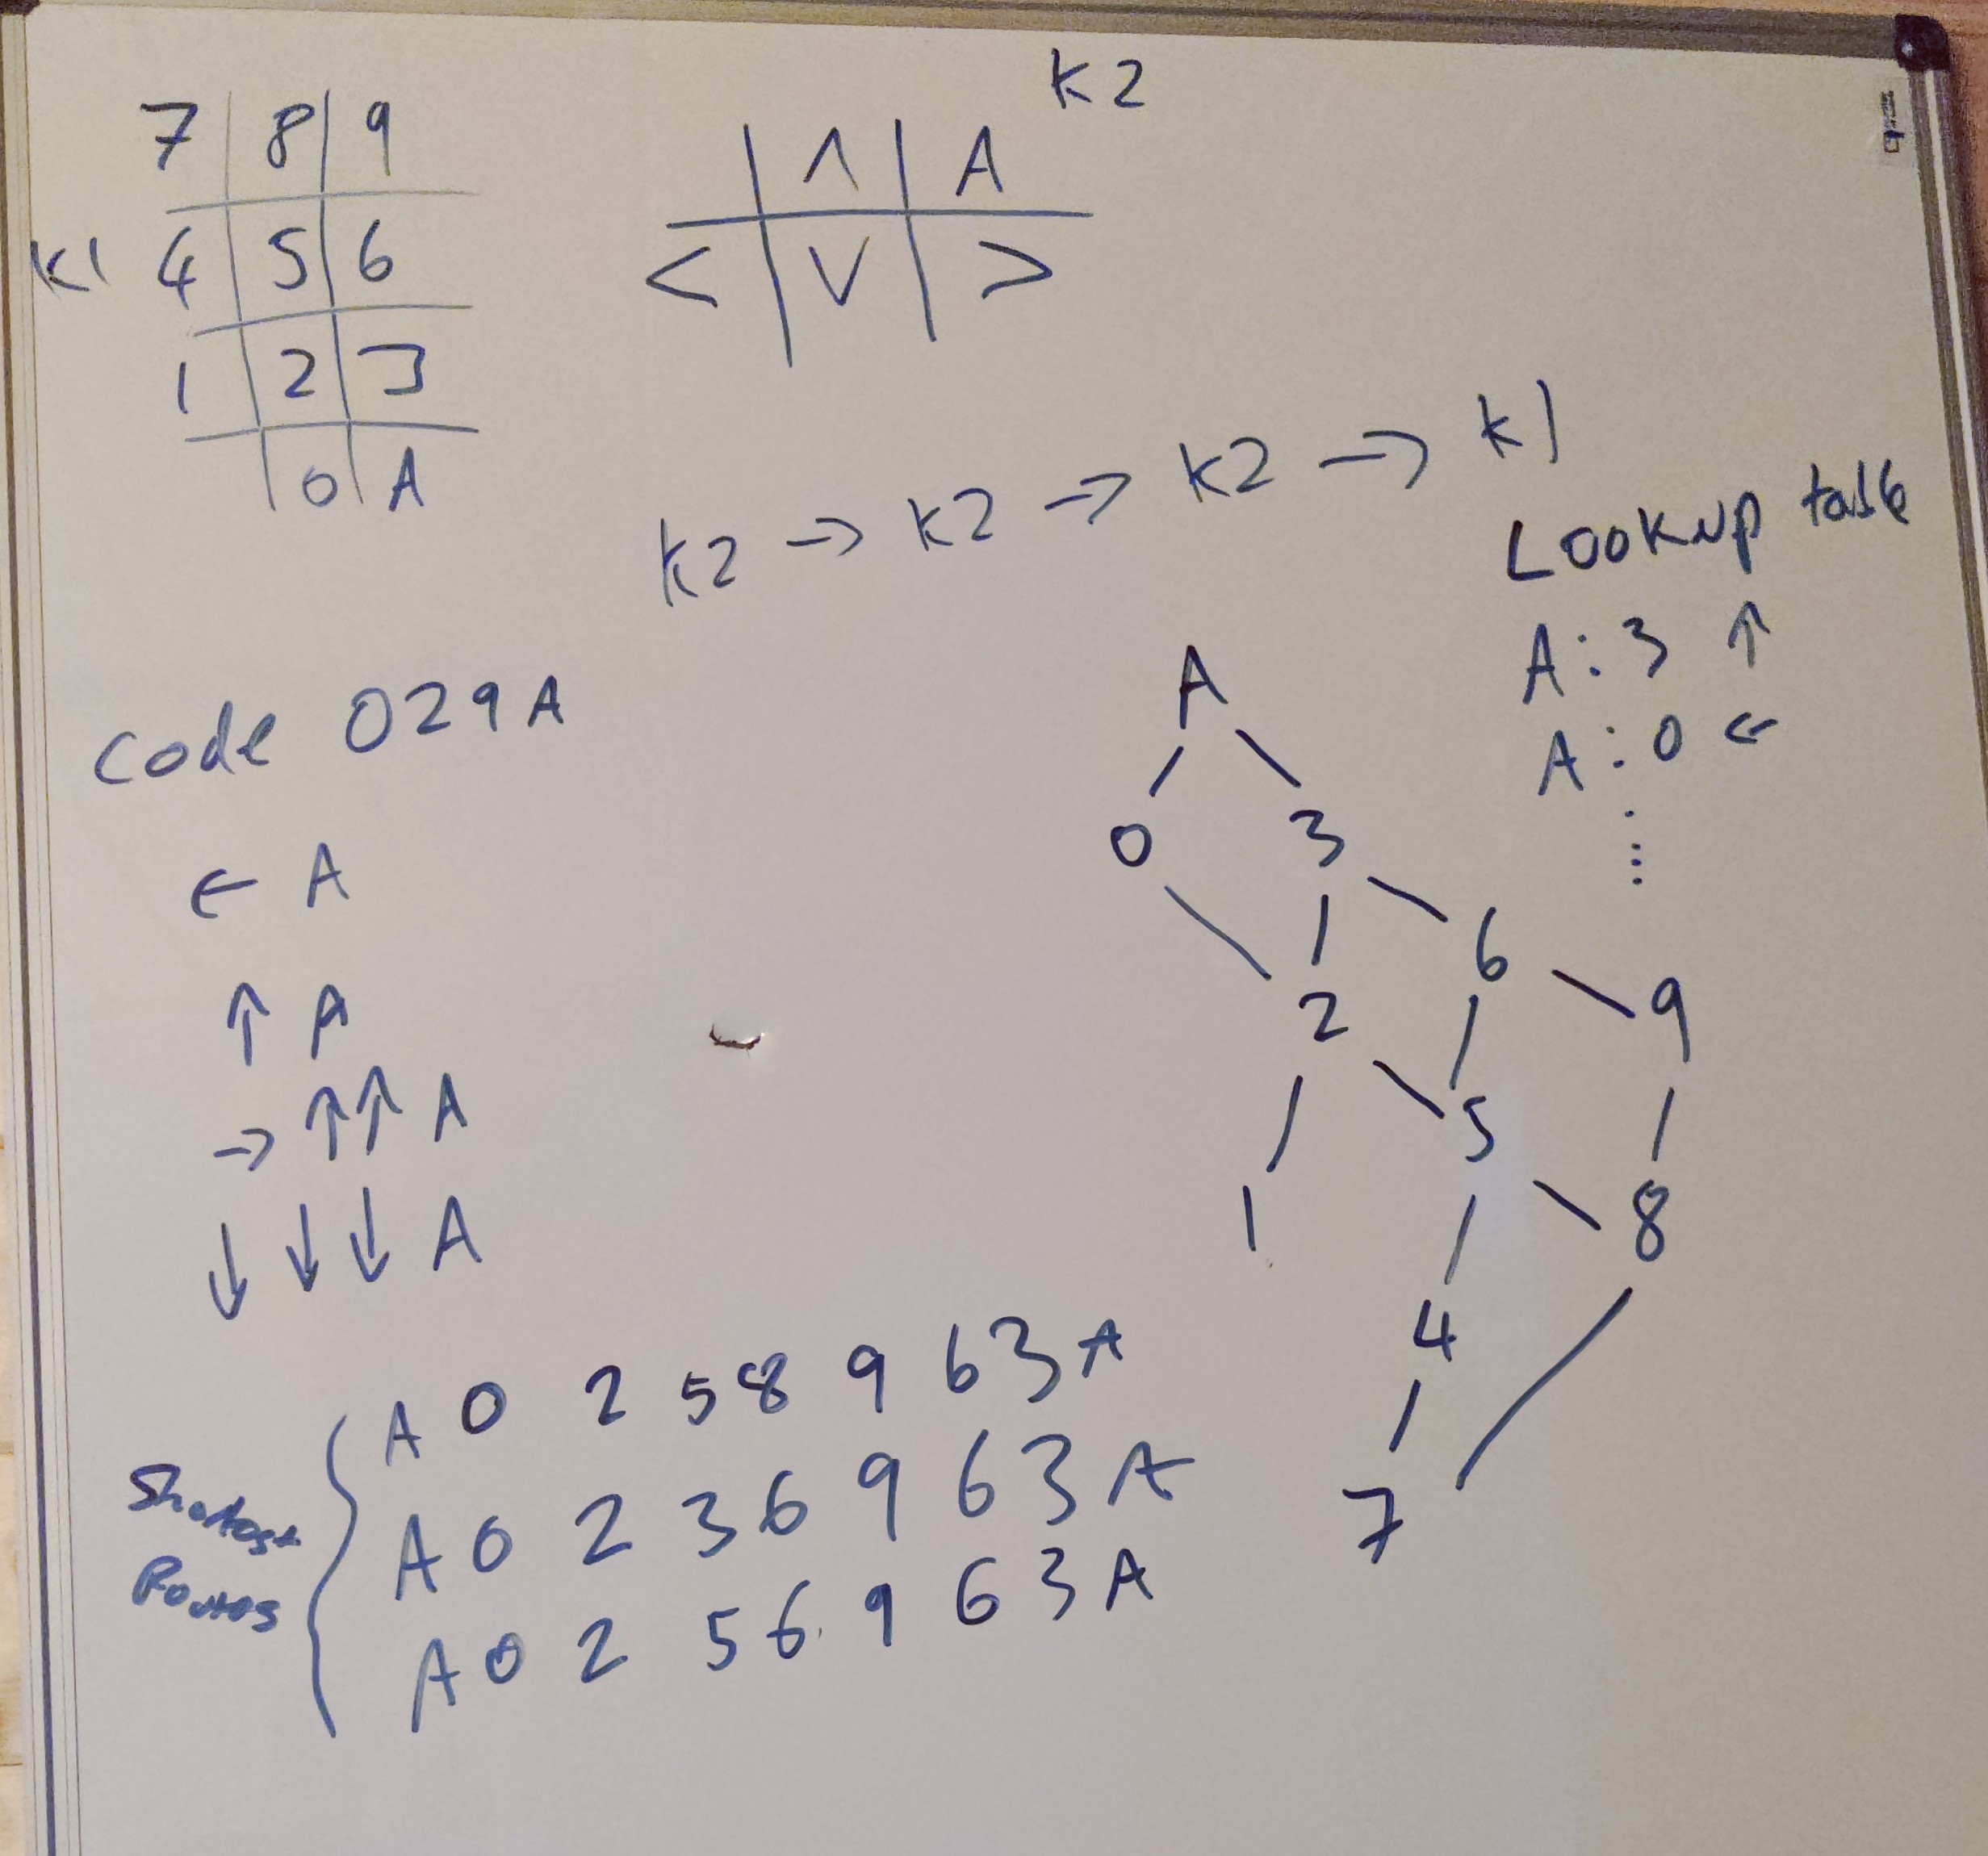 K2
7 8 9
K1 4 5 6
1 2 3
0 A
^ A
< v >
K2 → K2 → K2 → K1
Lookup table
A: 3 ↑
A: 0 ←
...
Code 029A
← A
↑ A
→ ↑↑ A
↓ ↓ ↓ A
A
0 3
6
2 9
5
1 8
4
7
Shortest
Routes
A 0 2 5 8 9 6 3 A
A 0 2 3 6 9 6 3 A
A 0 2 5 6 9 6 3 A